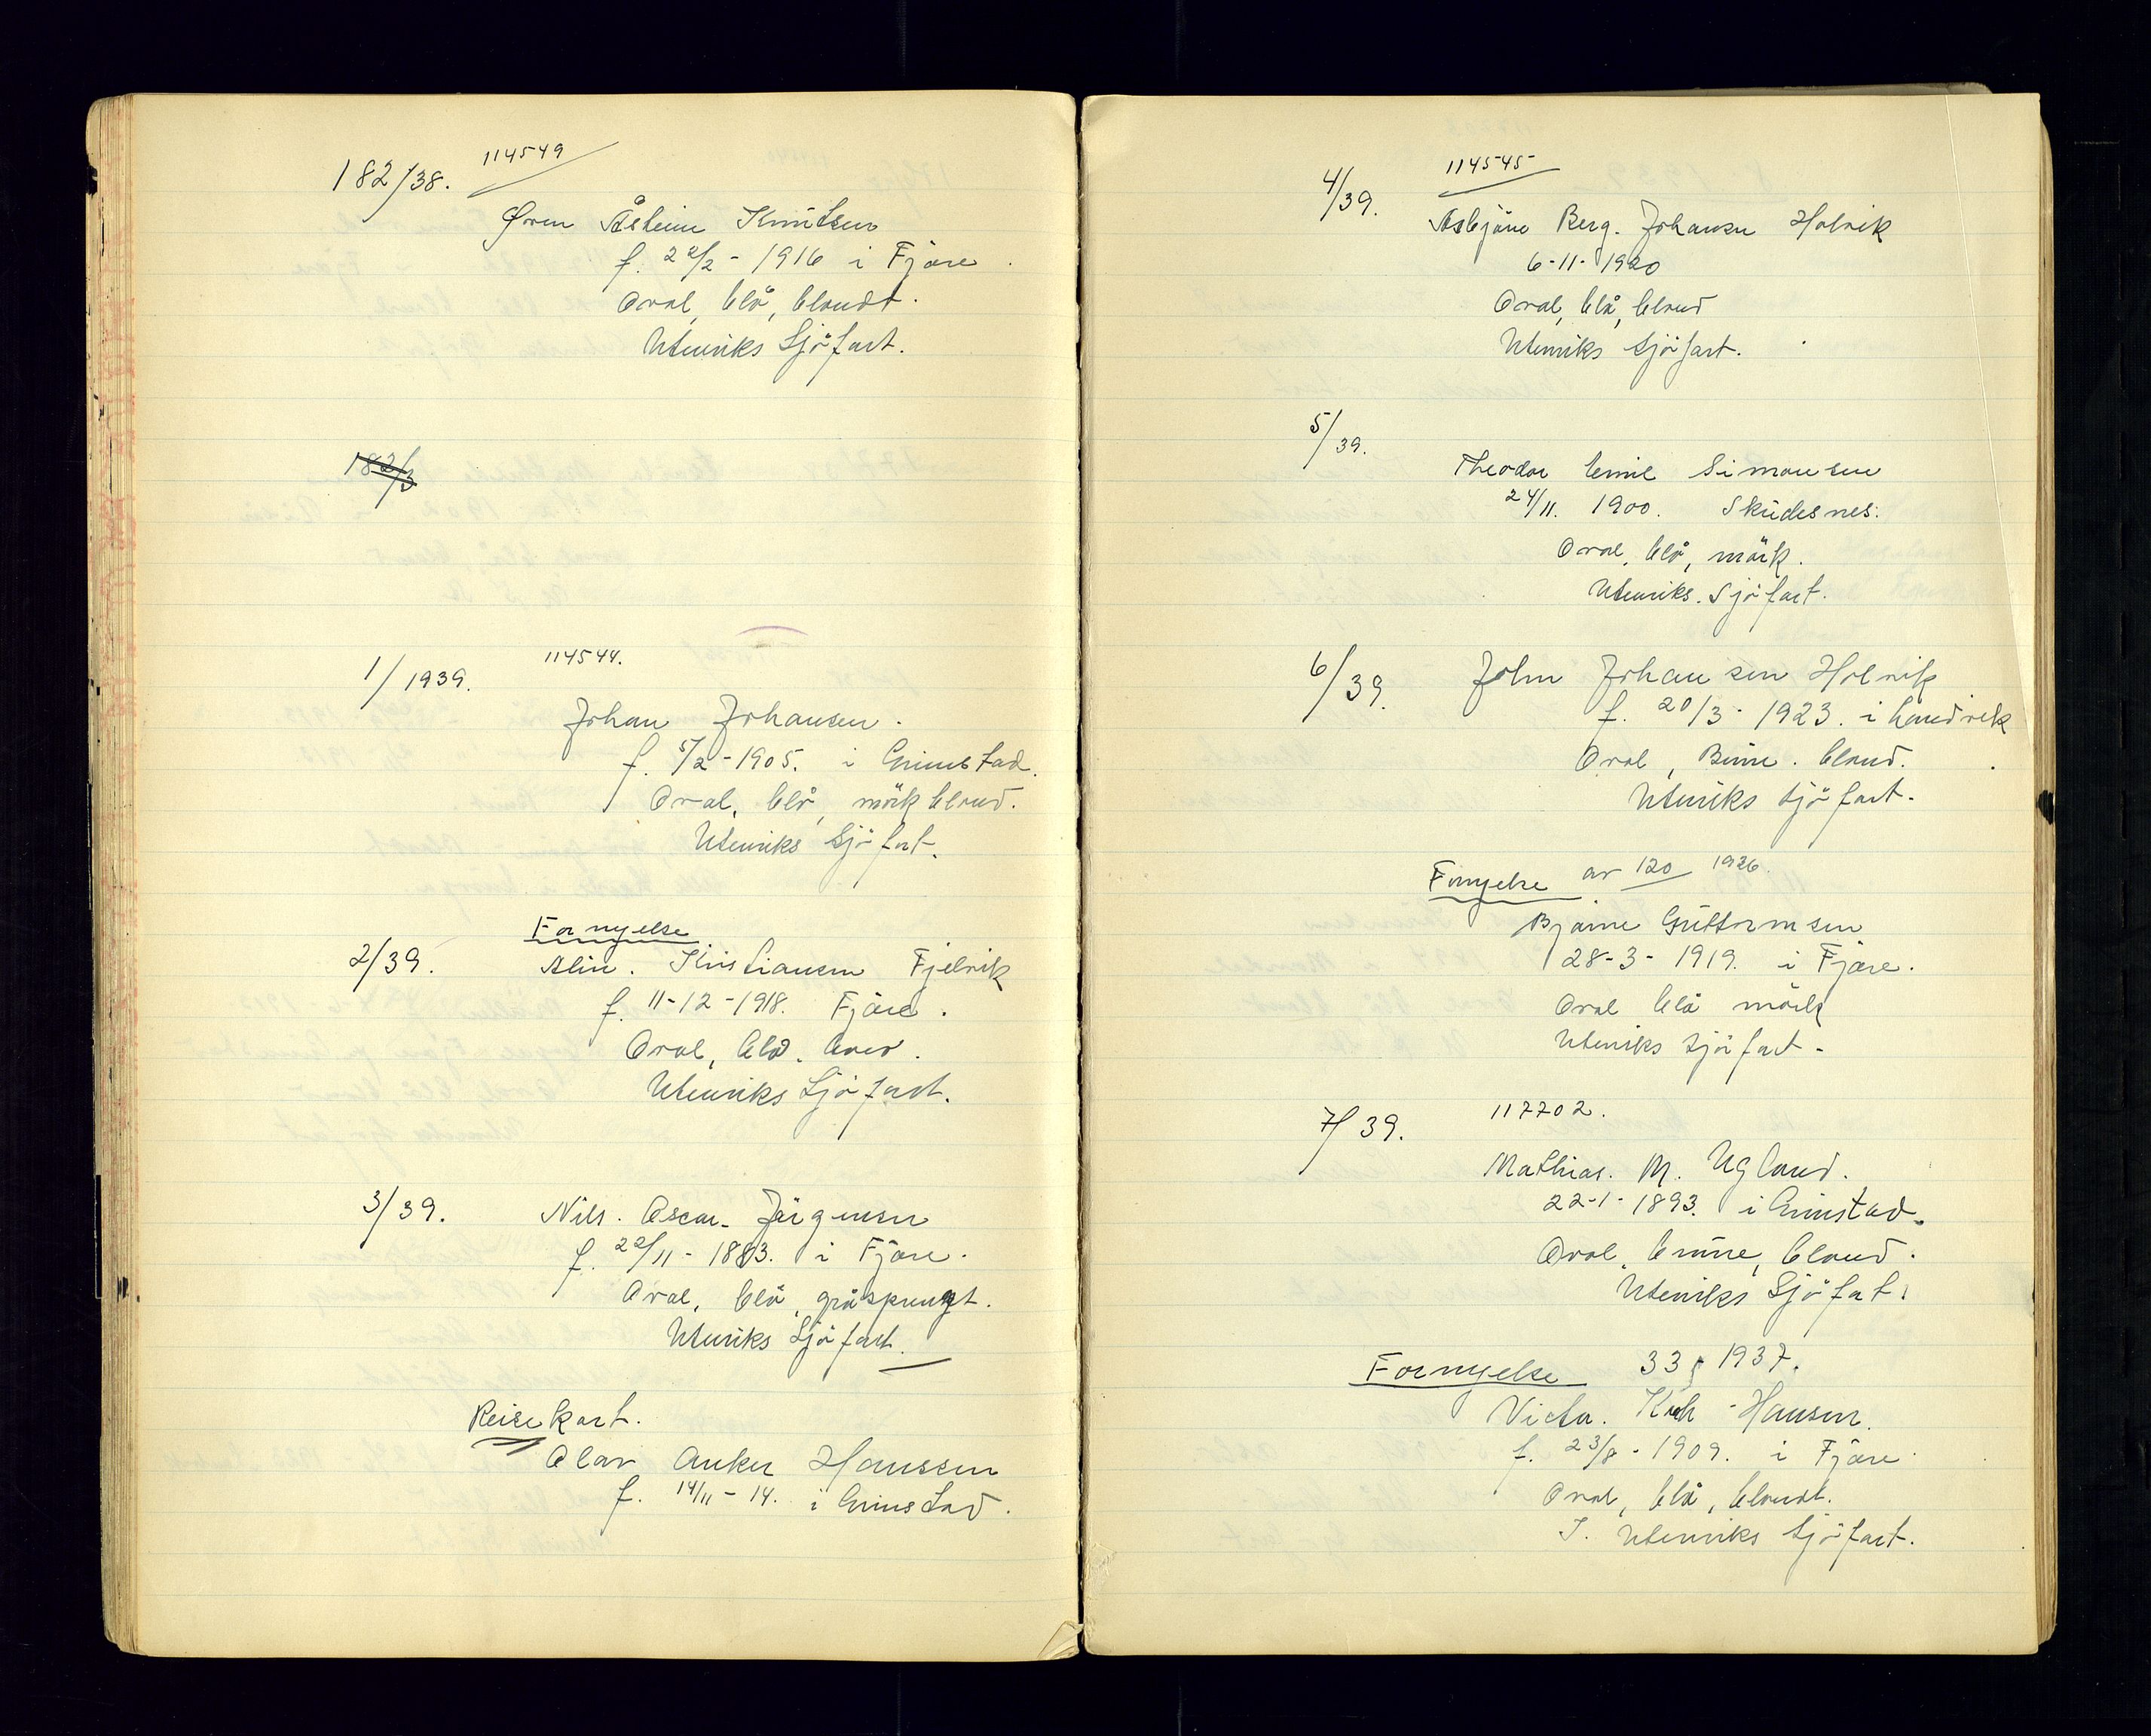 182/38. 114549
Øren Åsheim Knutsen
f. 22/2 - 1916 i Fjære
Oval, blå, blondt.
Utenriks Sjöfart.
182/3
1/1939. 114544.
Johan Johansen.
f. 5/2 - 1905. i Grimstad.
Oval, blå, mörk blond.
Utenriks Sjöfart.
Fornyelse
2/39. Alin. Kristiansen Fjelvik
f. 11-12-1918. Fjære.
Oval, blå.
Utenriks Sjöfart.
3/39. Nils. Oscar Jörgensen
f. 22/11 - 1883. i Fjære.
Oval, blå, gråsprengt.
Utenriks Sjöfart.
Reisekort.
Olav Anker Hanssen
f. 14/11 - 14. i Grimstad.
4/39. 114545
Asbjörn Berg. Johansen Holvik
6-11-1920
Oval, blå, blond
Utenriks Sjöfart.
5/39.
Theodor Emil Simonsen
24/11. 1900. Skudesnes.
Oval, blå, mörk.
Utenriks. Sjöfart.
6/39. John Johansen Holvik
f. 20/3 - 1923. i Landvik
Oval, Brune. blond.
Utenriks Sjöfart.
Fornyelse av 120 1936.
Bjarne Guttormsen
28-3-1919. i Fjære.
Oval blå mörk
Utenriks Sjöfart.
7/39. 117702.
Mathias. M. Ugland.
22-1-1893. i Grimstad.
Oval, brune, blond.
Utenriks Sjöfart.
Fornyelse 33 1937.
Victor. Hansen.
f. 23/8 - 1909. i Fjære
Oval, blå, blondt.
I. Utenriks Sjöfart.